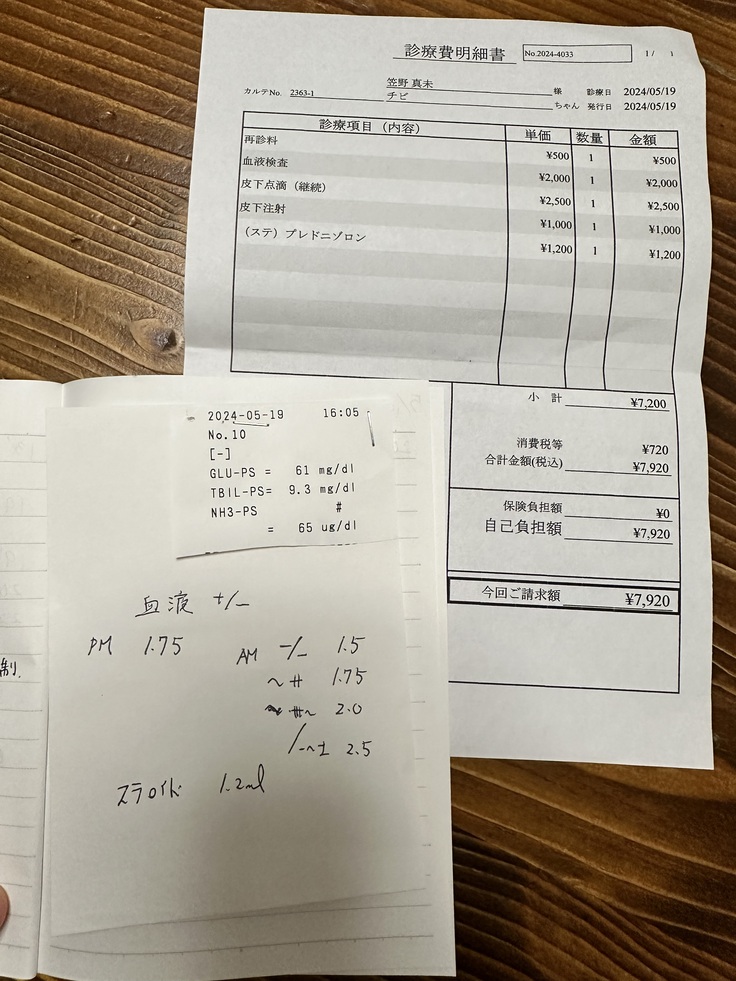 診療費明細書
No.2024-4033
1/ 1
カルテNo. 2363-1
笠野 真未 様
チビ ちゃん
診療日 2024/05/19
発行日 2024/05/19
診療項目（内容） 単価 数量 金額
再診料 ¥500 1 ¥500
血液検査 ¥2,000 1 ¥2,000
皮下点滴（継続） ¥2,500 1 ¥2,500
皮下注射 ¥1,000 1 ¥1,000
（ステ）プレドニゾロン ¥1,200 1 ¥1,200
小計 ¥7,200
消費税等 ¥720
合計金額(税込) ¥7,920
保険負担額 ¥0
自己負担額 ¥7,920
今回ご請求額 ¥7,920
2024-05-19 16:05
No.10
[-]
GLU-PS = 61 mg/dl
TBIL-PS= 9.3 mg/dl
NH3-PS #
= 65 ug/dl
血液 +/-
PM 1.75
AM -/- 1.5
~ # 1.75
2.0
2.5
ステロイド 1.2ml
制.